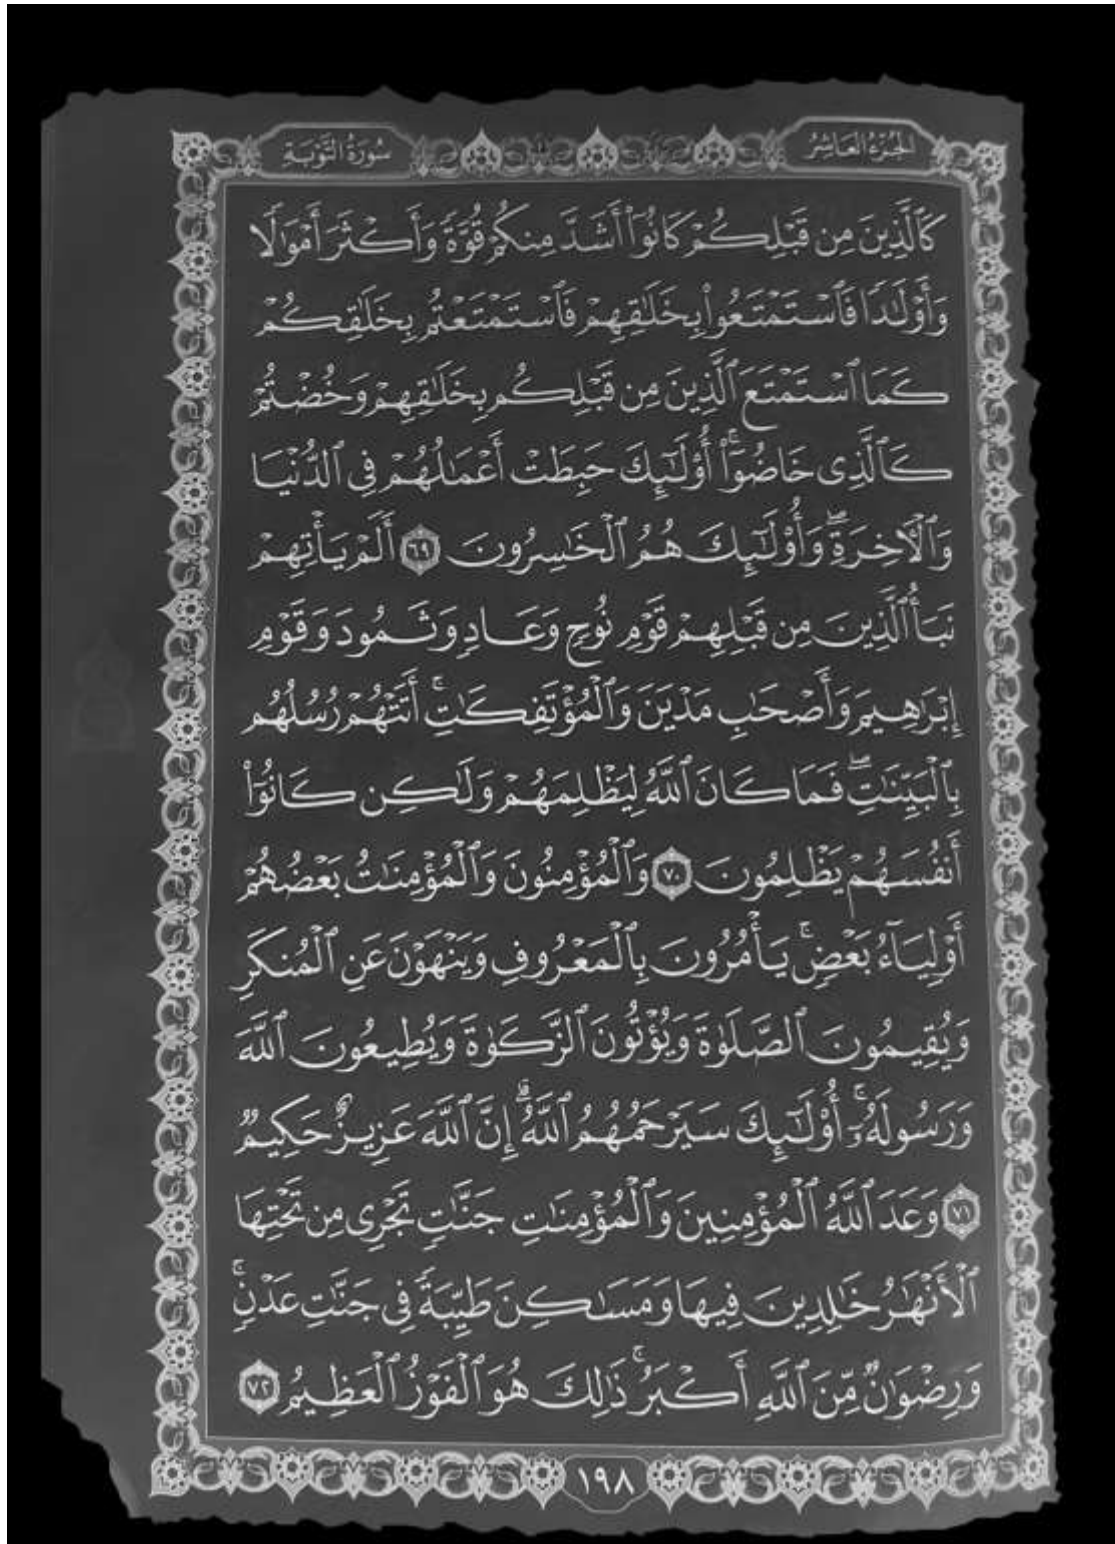 الجزء العاشر
سورة التوبة
كَٱلَّذِينَ مِن قَبْلِكُمْ كَانُوٓا۟ أَشَدَّ مِنكُمْ قُوَّةً وَأَكْثَرَ أَمْوَٰلًا
وَأَوْلَٰدًا فَٱسْتَمْتَعُوا۟ بِخَلَٰقِهِمْ فَٱسْتَمْتَعْتُم بِخَلَٰقِكُمْ
كَمَا ٱسْتَمْتَعَ ٱلَّذِينَ مِن قَبْلِكُم بِخَلَٰقِهِمْ وَخُضْتُمْ
كَٱلَّذِى خَاضُوٓا۟ ۚ أُو۟لَٰٓئِكَ حَبِطَتْ أَعْمَٰلُهُمْ فِى ٱلدُّنْيَا
وَٱلْءَاخِرَةِ ۖ وَأُو۟لَٰٓئِكَ هُمُ ٱلْخَٰسِرُونَ ٦٩ أَلَمْ يَأْتِهِمْ
نَبَأُ ٱلَّذِينَ مِن قَبْلِهِمْ قَوْمِ نُوحٍ وَعَادٍ وَثَمُودَ وَقَوْمِ
إِبْرَٰهِيمَ وَأَصْحَٰبِ مَدْيَنَ وَٱلْمُؤْتَفِكَٰتِ ۚ أَتَتْهُمْ رُسُلُهُم
بِٱلْبَيِّنَٰتِ ۖ فَمَا كَانَ ٱللَّهُ لِيَظْلِمَهُمْ وَلَٰكِن كَانُوٓا۟
أَنفُسَهُمْ يَظْلِمُونَ ٧٠ وَٱلْمُؤْمِنُونَ وَٱلْمُؤْمِنَٰتُ بَعْضُهُمْ
أَوْلِيَآءُ بَعْضٍ ۚ يَأْمُرُونَ بِٱلْمَعْرُوفِ وَيَنْهَوْنَ عَنِ ٱلْمُنكَرِ
وَيُقِيمُونَ ٱلصَّلَوٰةَ وَيُؤْتُونَ ٱلزَّكَوٰةَ وَيُطِيعُونَ ٱللَّهَ
وَرَسُولَهُۥٓ ۚ أُو۟لَٰٓئِكَ سَيَرْحَمُهُمُ ٱللَّهُ ۗ إِنَّ ٱللَّهَ عَزِيزٌ حَكِيمٌ
٧١ وَعَدَ ٱللَّهُ ٱلْمُؤْمِنِينَ وَٱلْمُؤْمِنَٰتِ جَنَّٰتٍ تَجْرِى مِن تَحْتِهَا
ٱلْأَنْهَٰرُ خَٰلِدِينَ فِيهَا وَمَسَٰكِنَ طَيِّبَةً فِى جَنَّٰتِ عَدْنٍ ۚ
وَرِضْوَٰنٌ مِّنَ ٱللَّهِ أَكْبَرُ ۚ ذَٰلِكَ هُوَ ٱلْفَوْزُ ٱلْعَظِيمُ ٧٢
١٩٨